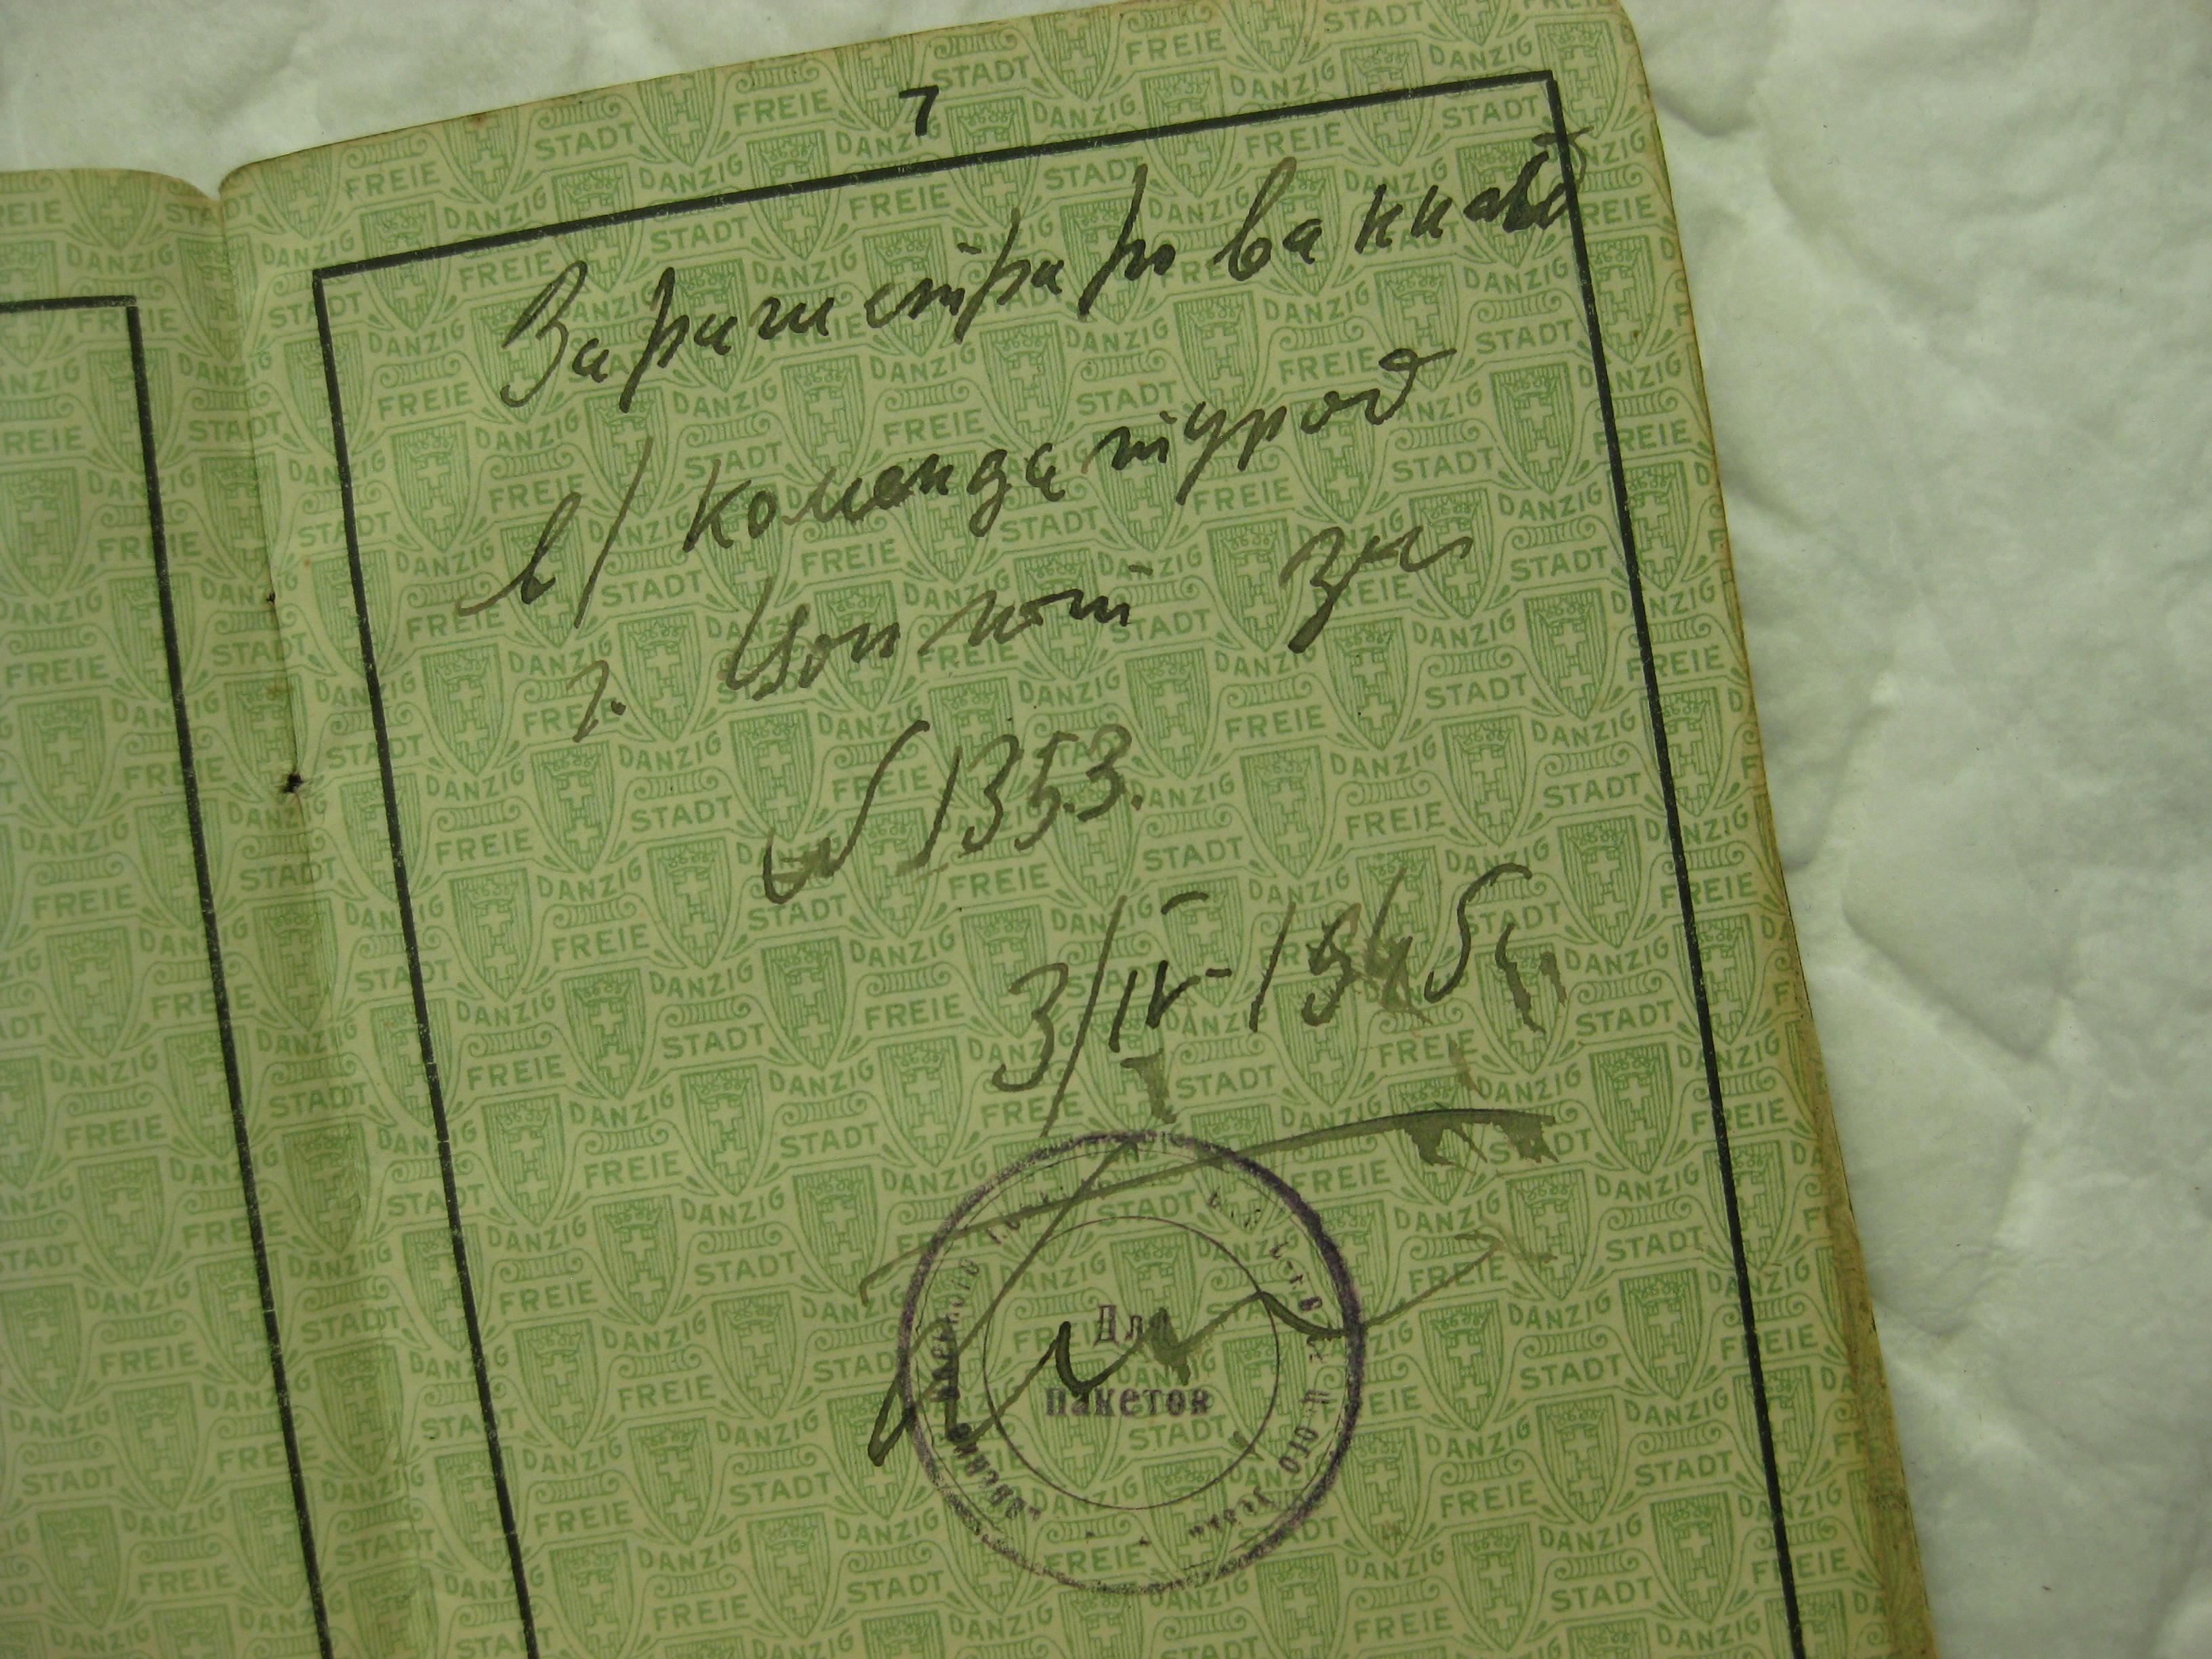 7
Заригистрированный
в/комендатурой
г. Цоппот за
N 1353.
3/IV-1945 г.
Для
пакетов
FREIE STADT DANZIG